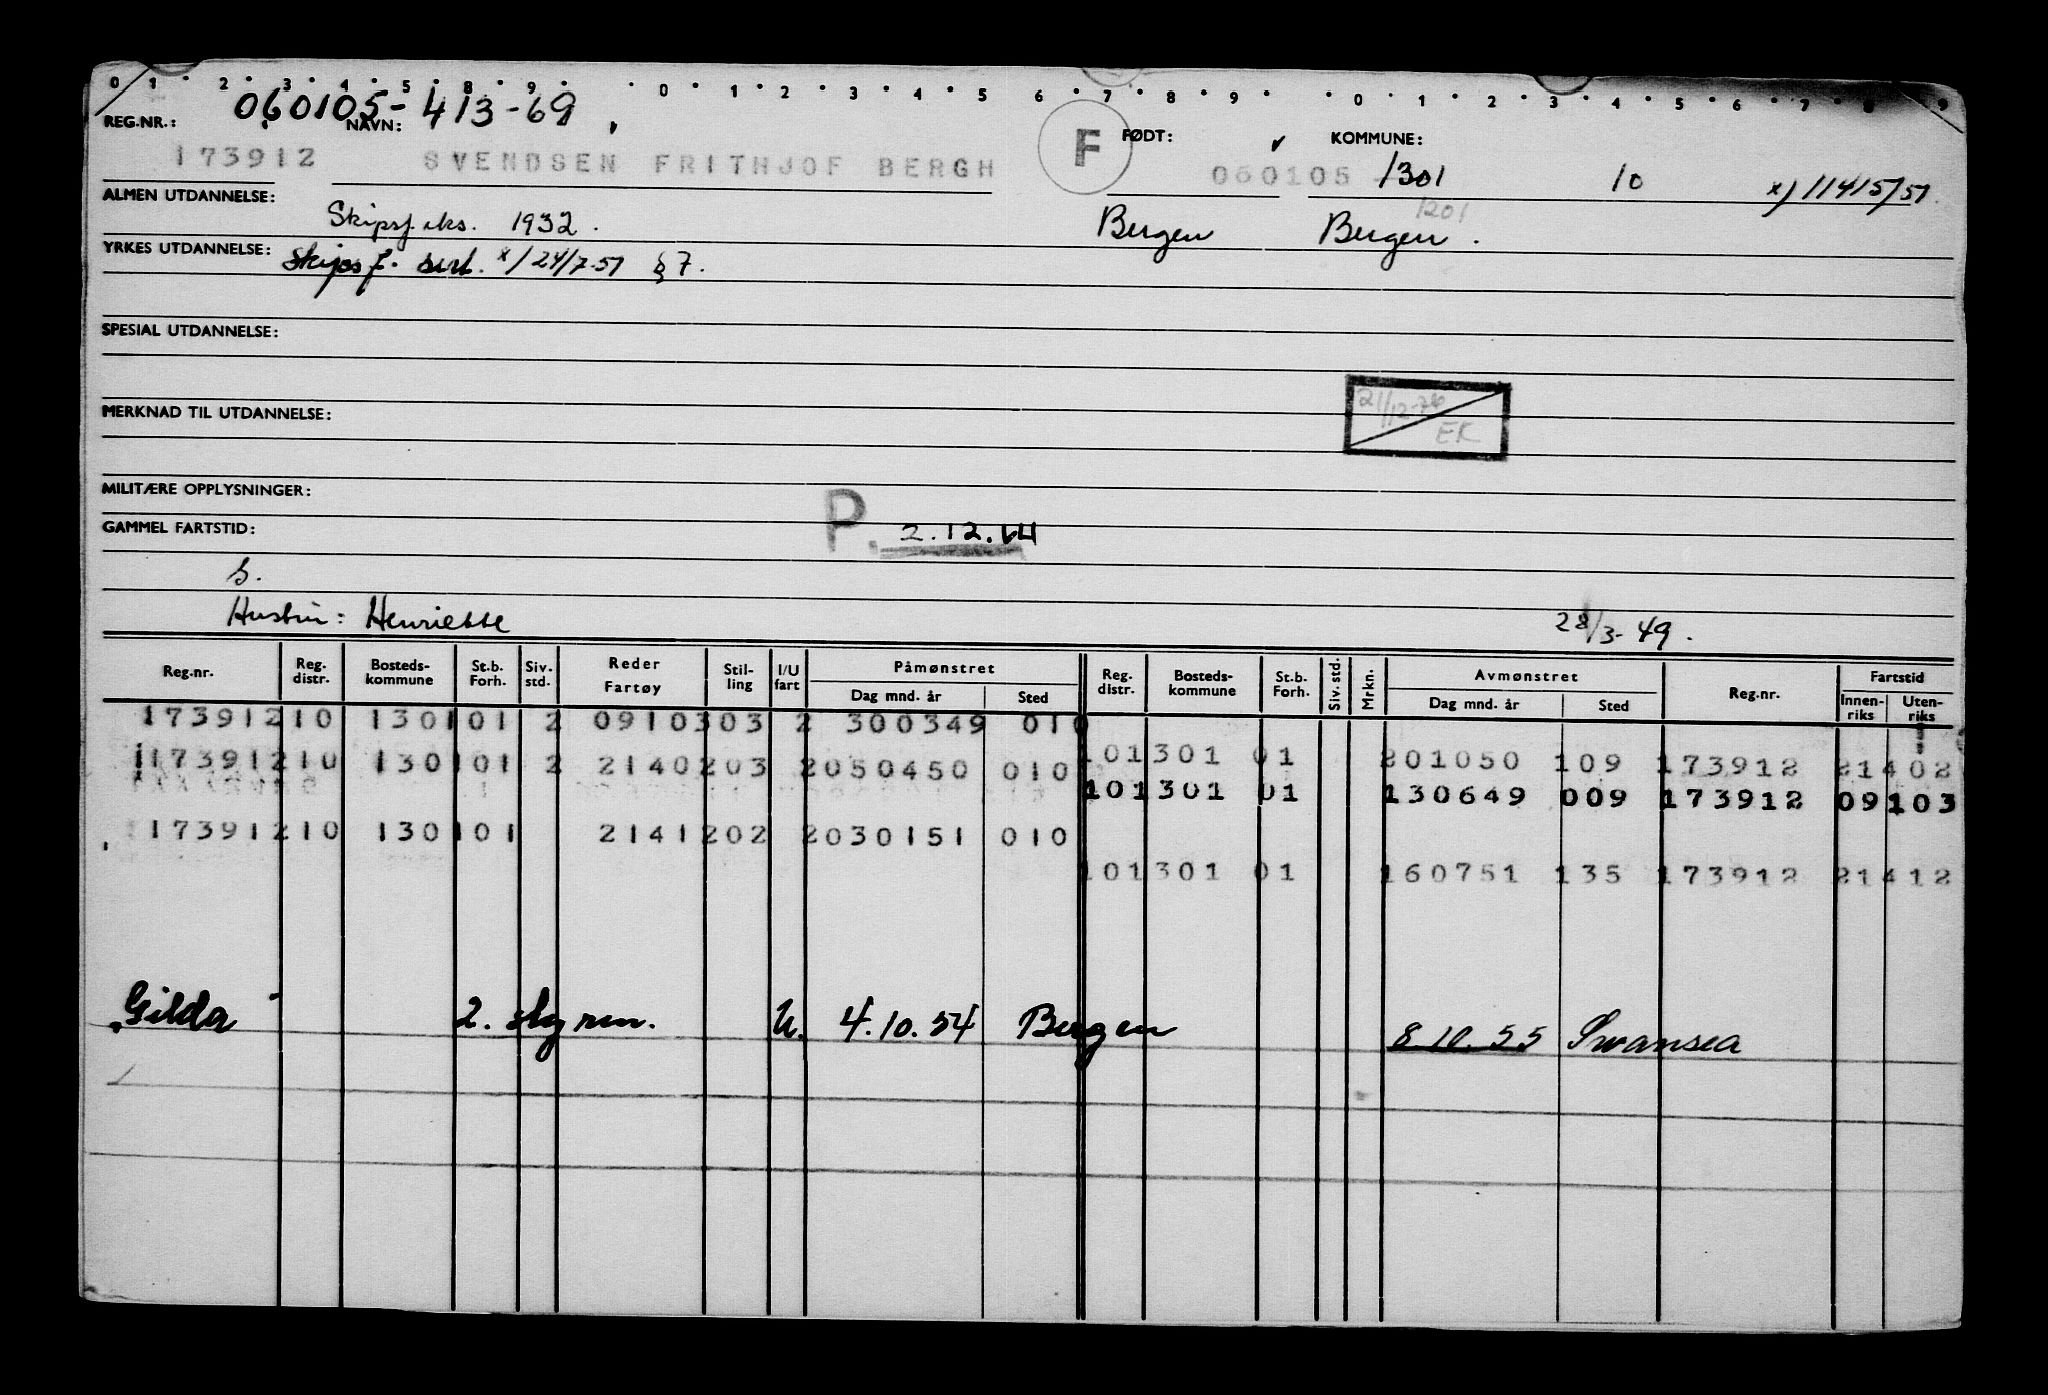 0 1 · 2 · 3 · 4 · 5 · 8 · 9 · · 0 · 1 · 2 · 3 · 4 · 5 6 · 7 · 8 · 9 · · 0 · 1 · 2 · 3 · 4 · 5 · 6 · 7 · 8 · 9
060105-413-69
REG.NR.: NAVN: FØDT: KOMMUNE:
173912 SVENDSEN FRITHJOF BERGH F 060105 1301 10 x) 114/5/51.
ALMEN UTDANNELSE: Skipsf.eks. 1932. Bergen Bergen. 1201
YRKES UTDANNELSE: Skipsf. sert. x/ 24/7-51 § 7.
SPESIAL UTDANNELSE:
21/12-76
EK
MERKNAD TIL UTDANNELSE:
MILITÆRE OPPLYSNINGER:
GAMMEL FARTSTID: P. 2.12.64
S.
Hustru: Henriette 28/3-49.
Reg.nr. Reg. distr. Bosteds-kommune St.b. Forh. Siv. std. Reder Fartøy Stil-ling I/U fart Påmønstret Dag mnd. år Sted Reg. distr. Bosteds-kommune St.b. Forh. Siv. std. Mrkn. Avmønstret Dag mnd. år Sted Reg.nr. Fartstid Innen-riks Uten-riks
173912 10 1301 01 2 0910303 2 300349 010
173912 10 1301 01 2 2140203 2050450 010 101301 01 201050 109 173912 21402
101301 01 130649 009 173912 09103
173912 10 1301 01 2141202 2030151 010
101301 01 160751 135 173912 21412
Gilda 2. styrm. U. 4.10.54 Bergen 8.10.55 Swansea